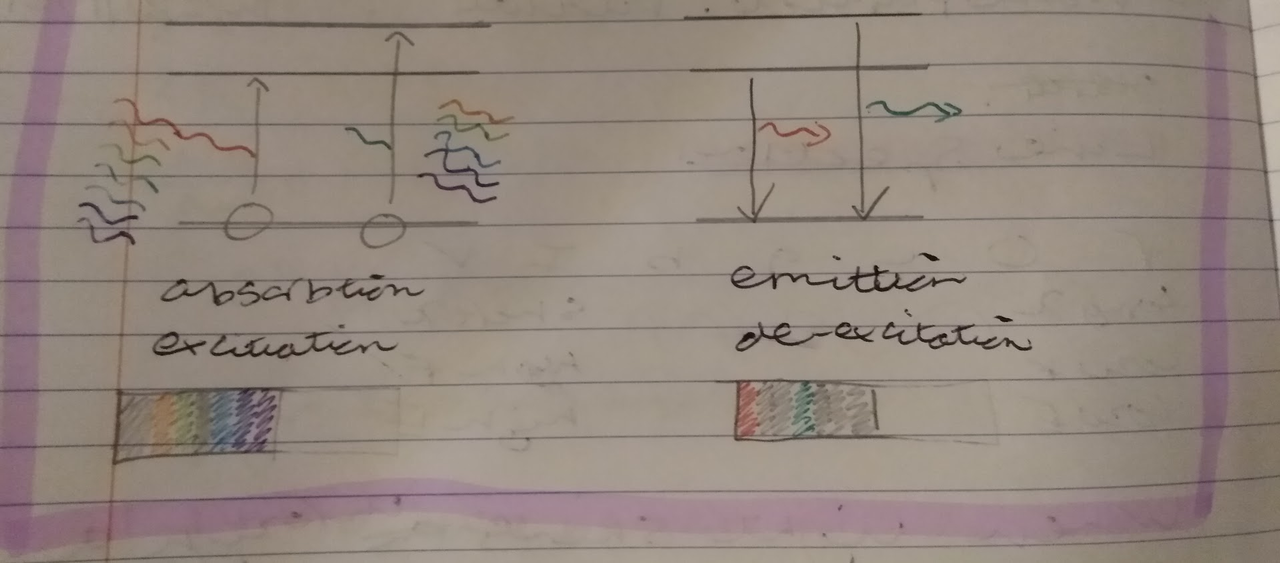 absorbtion
emittion
excitiation
de-excitation